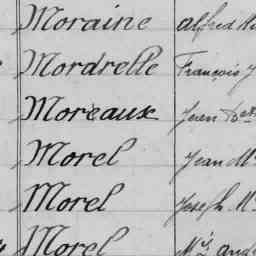 Moraine Alfred
Mordrelle François J
Moreaux Jean
Morel Jean M
Morel Joseph M
Morel